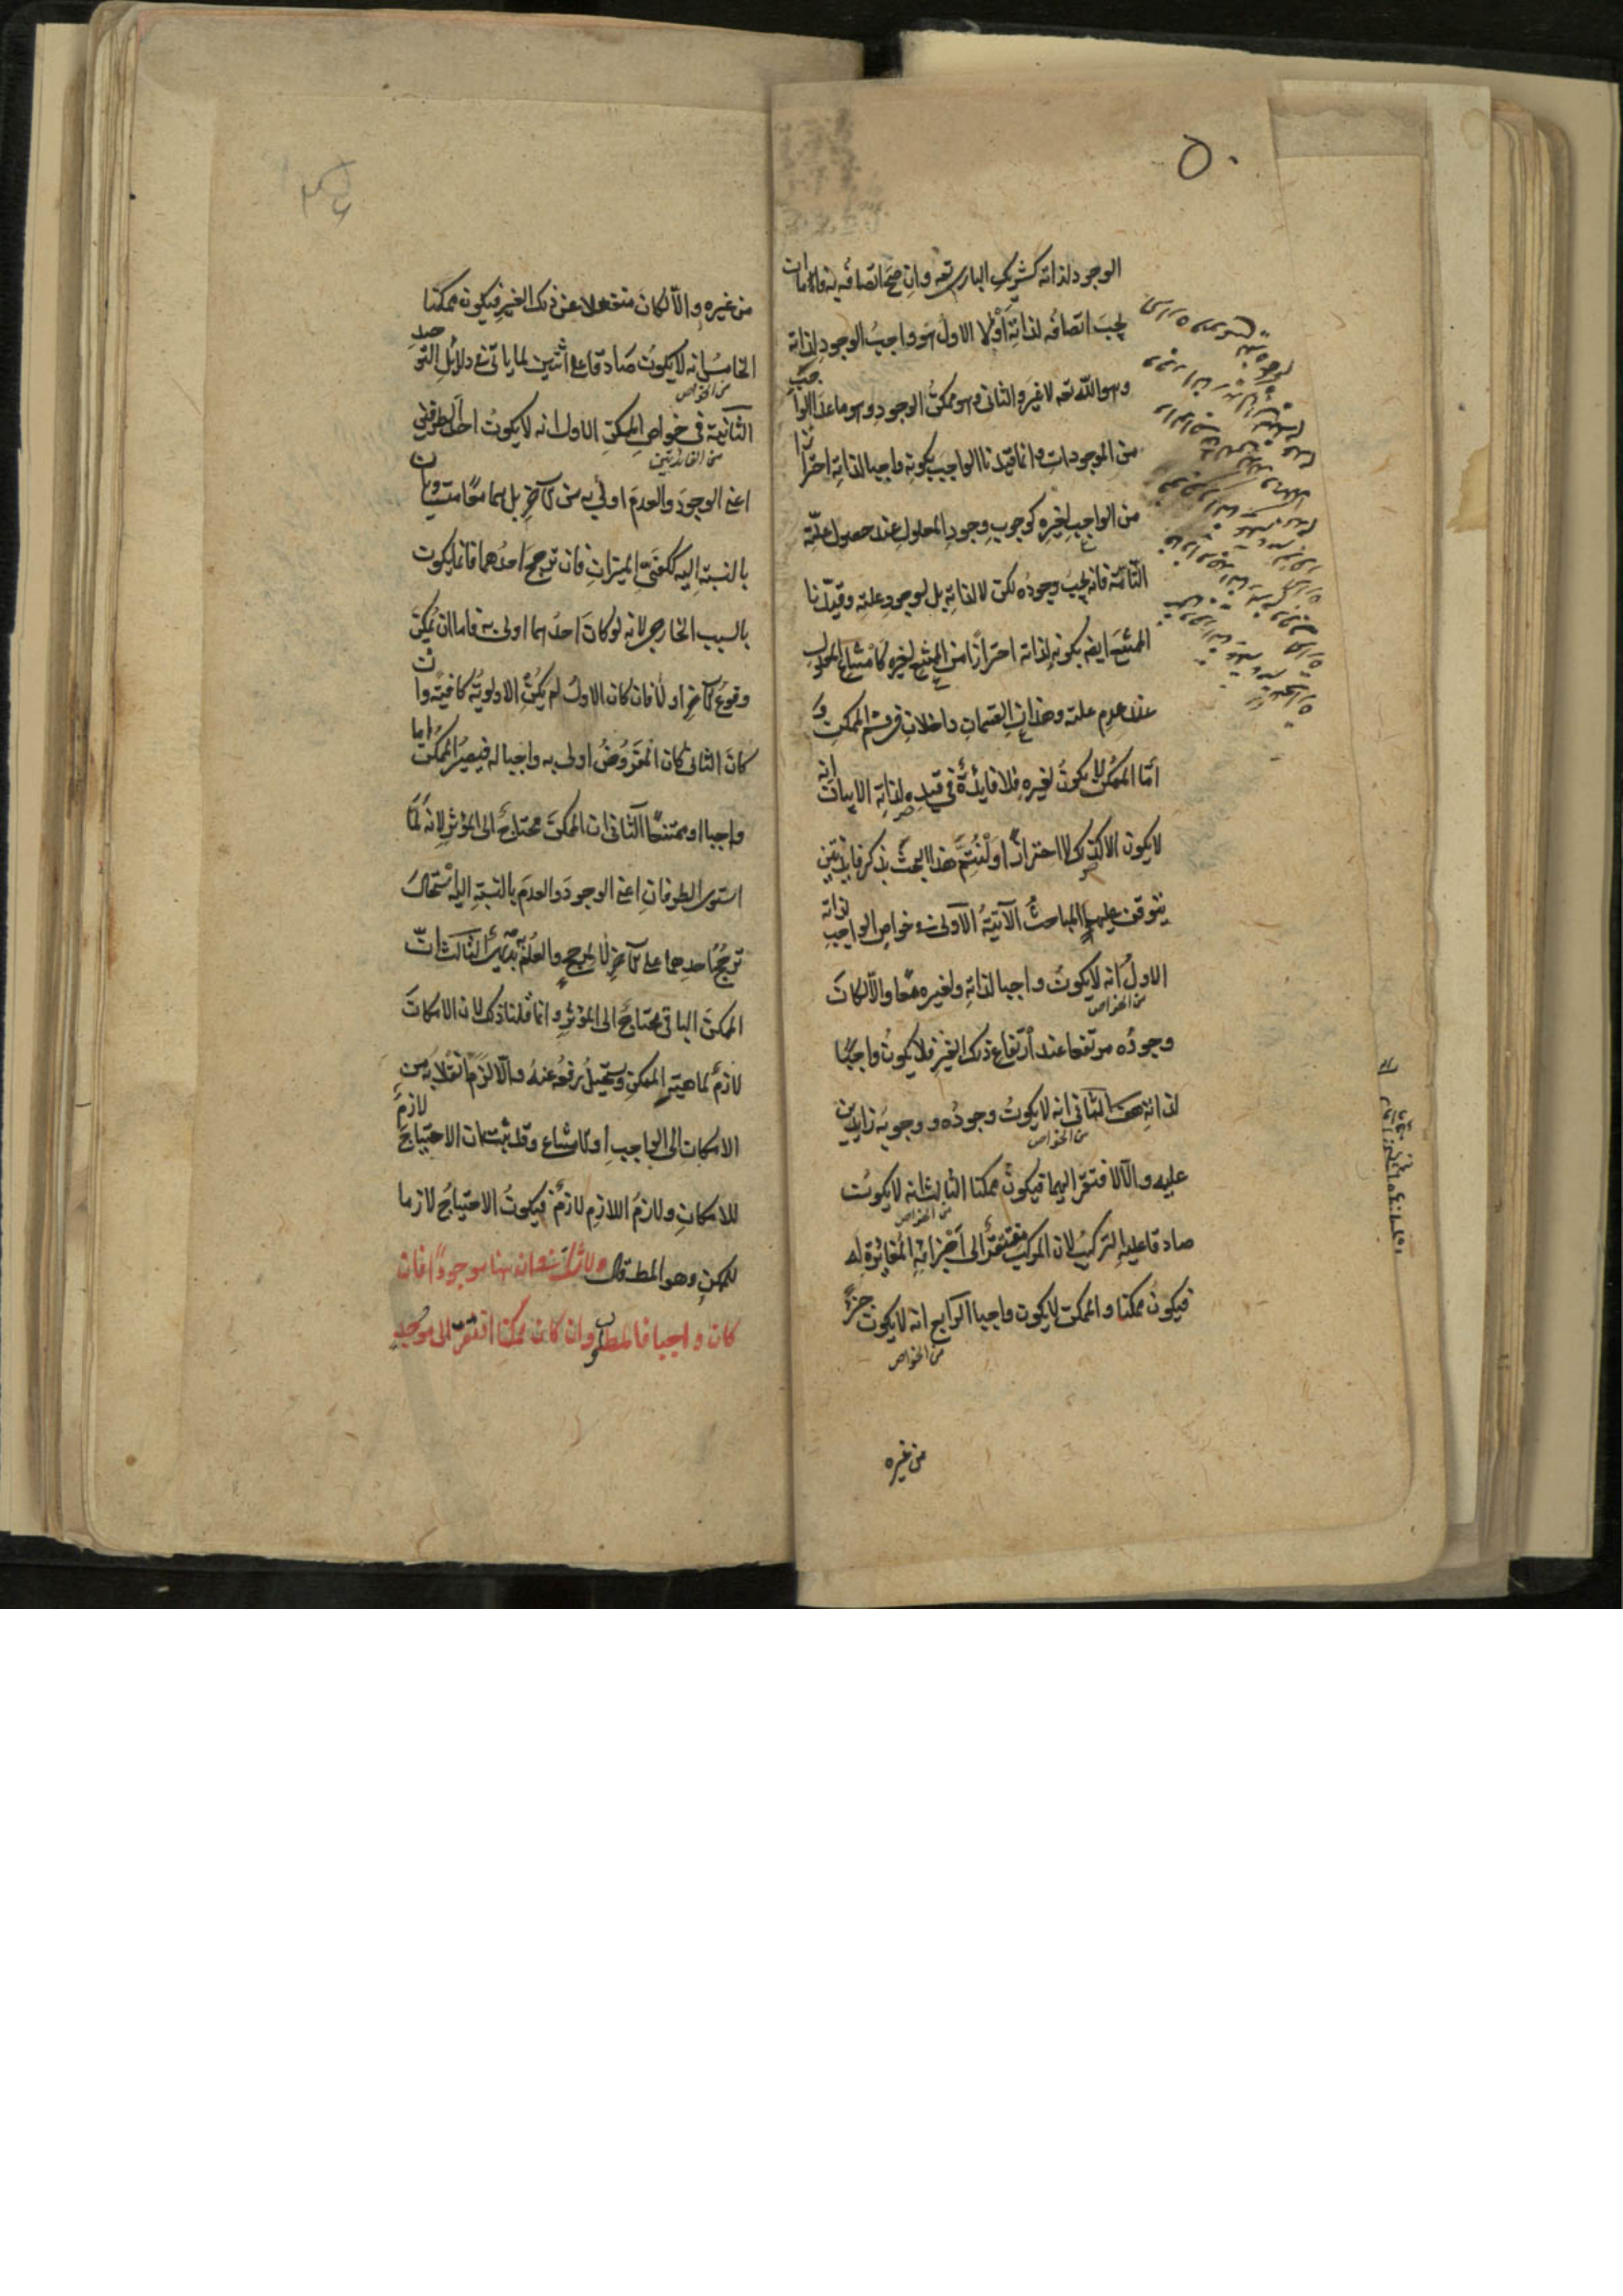 ٥٠
الوجود لذاته كشريك الباري تعه وان صح اتصافه به فاما ان
يجب اتصافه لذاته اولا الاول هو واجب الوجود لذاته
وهو الله تعه لا غير والثاني وهو ممكن الوجود وهو ما عدا الواجب
من الموجودات وانما قيدنا الواجب بكونه واجبا لذاته احترازا
من الواجب لغيره كوجوب وجود المعلول عند حصول علته
التامة فانه يجب وجوده لكن لا لذاته بل لوجود علته وقيدنا
الممتنع ايضه بكونه لذاته احترازا من الممتنع لغيره كامتناع المعلول
عند عدم علته وهذان القسمان داخلان في قسم الممكن و
اما الممكن لا يكون لغيره فلا فايدة في قيده لذاته الا بيان انه
لا يكون الا كذلك لا احترازا ولنتم هذا البحث بذكر فايدتين
يتوقف عليهما المباحث الآتية الاولى في خواص الواجب لذاته
الاول انه لا يكون واجبا لذاته ولغيره معا والا لكان
من الخواص
وجوده مرتفعا عند ارتفاع ذلك الغير فلا يكون واجبا
لذاته هف الثاني انه لا يكون وجوده و وجوبه زايدين
من الخواص
عليه والا لافتقر اليهما فيكون ممكنا الثالث انه لا يكون
من الخواص
صادقا عليه التركيب لان المركب مفتقر الى اجزائه المغايرة له
فيكون ممكنا والممكن لا يكون واجبا الرابع انه لا يكون جزء
من الخواص
من غيره
من غيره والا لكان منفعلا عن ذلك الغير فيكون ممكنا
الخامس انه لا يكون صادقا على اثنين لما ياتي في دلائل التوحيد
من الخواص
الثانية في خواص الممكن الاول انه لا يكون احد الطرفين
من الفائدتين
اعني الوجود والعدم اولى به من الآخر بل هما معا متساويان
بالنسبة اليه ككفتي الميزان فان ترجح احدهما فانما يكون
بالسبب الخارجي لانه لو كان احدهما اولى به فاما ان يمكن
وقوع الآخر اولا فان كان الاول لم يكن الاولوية كافية وان
كان الثاني كان المفروض اولى به واجبا له فيصير الممكن اما
واجبا او ممتنعا الثاني ان الممكن محتاج الى المؤثر لانه لما
استوى الطرفان اعني الوجود والعدم بالنسبة اليه استحال
ترجح احدهما على الآخر الا لمرجح والعلم به بديهي الثالث ان
الممكن الباقي محتاج الى المؤثر وانما قلنا ذلك لان الامكان
لازم لماهية الممكن ويستحيل رفعه عنه والا لزم انقلابه من
الامكان الى الواجب او الامتناع وقد ثبت ان الاحتياج لازم
للامكان ولازم اللازم لازم فيكون الاحتياج لازما
للممكن وهو المط قال ولا شك في ان هنا موجودا فان
كان واجبا فالمطلوب وان كان ممكنا افتقر الى موجد